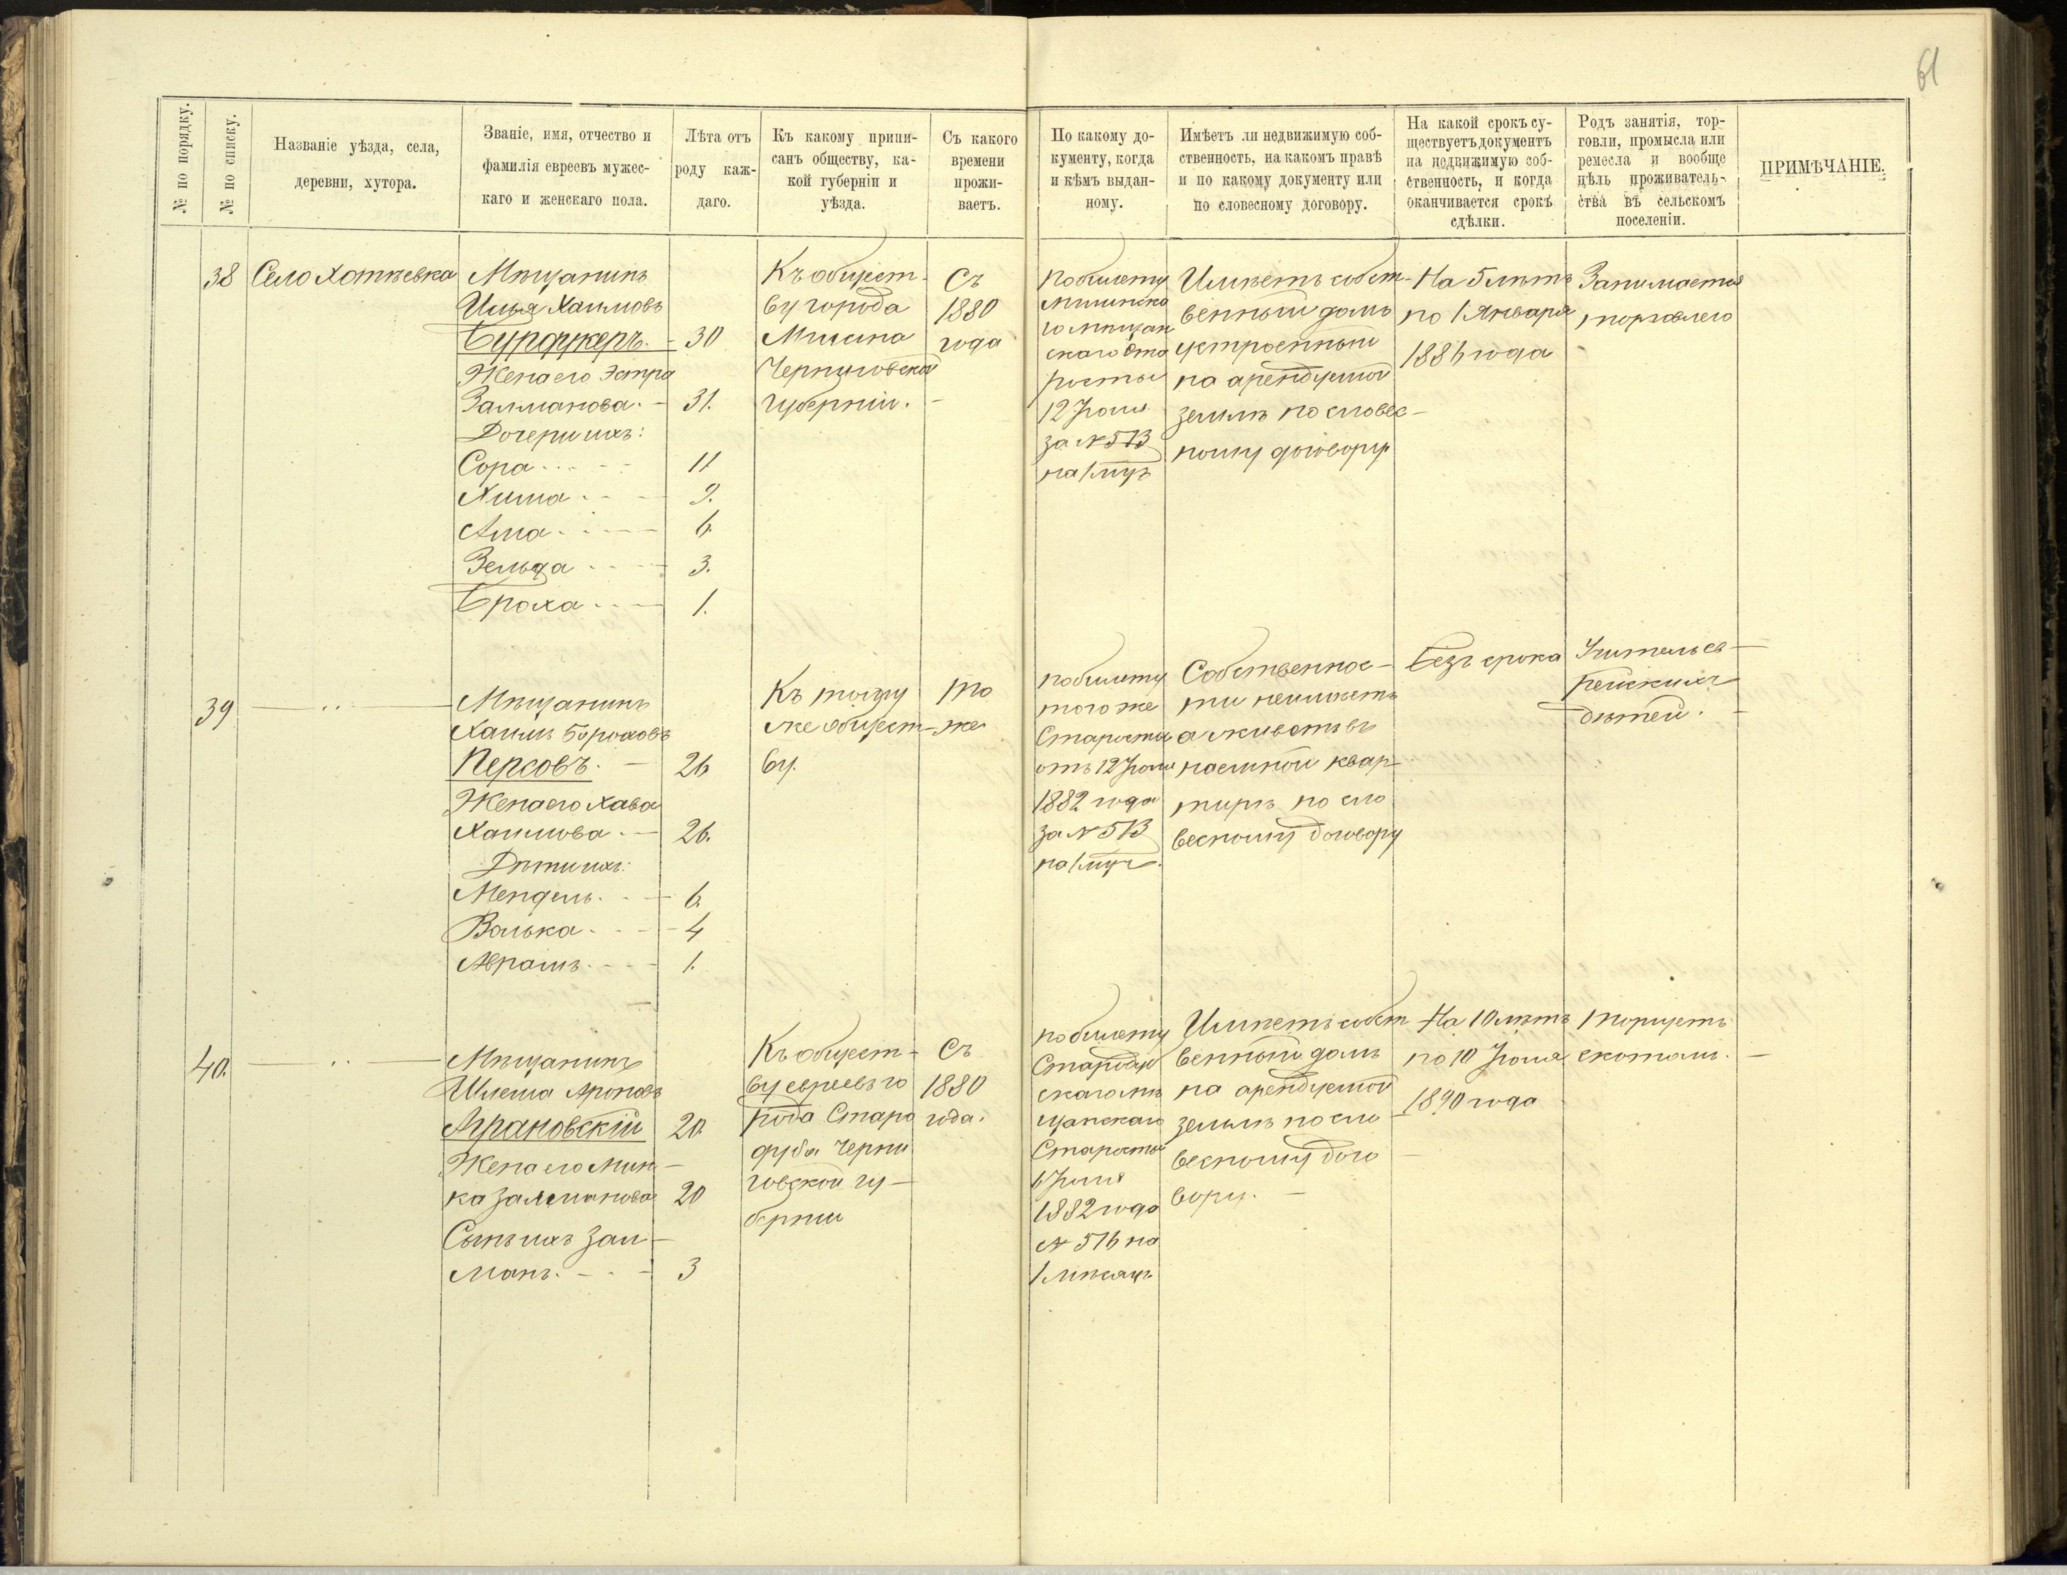 61
№ по порядку.
№ по списку.
Названіе уѣзда, села,
деревни, хутора.
Званіе, имя, отчество и
фамилія евреевъ мужес-
каго и женскаго пола.
Лѣта отъ
роду каж-
даго.
Къ какому припи-
санъ обществу, ка-
кой губерніи и
уѣзда.
Съ какого
времени
прожи-
ваетъ.
По какому до-
кументу, когда
и кѣмъ выдан-
ному.
Имѣетъ ли недвижимую соб-
ственность, на какомъ правѣ
и по какому документу или
по словесному договору.
На какой срокъ су-
ществуетъ документъ
на недвижимую соб-
ственность, и когда
оканчивается срокъ
сдѣлки.
Родъ занятія, тор-
говли, промысла или
ремесла и вообще
цѣль проживатель-
ства въ сельскомъ
поселеніи.
ПРИМѢЧАНІЕ.
38
Село Хотѣевка
Мѣщанинъ
Хаимовъ
Бурдукеръ. - 30
Жена его Эстра
Залманова. - 31.
Дочери ихъ:
Сора 11
Хима 9.
6.
Зельда 3.
Броха 1.
Къ общест-
ву города
Мглина
Черниговской
губерніи. -
Съ
1880
года
по билету
Мглинска
го мѣщан
скаго ста
росты
12 Іюля
за № 513
на 1 мѣц
Имѣетъ собст-
венный домъ
устроенный
на арендуемой
землѣ по словес-
ному договору
На 5 лѣтъ
по 1 Января
1886 года -
Занимается
торговлею
39 — " —
Мѣщанинъ
Хаимъ Бороховъ
Персовъ. - 26
Жена его Хава
Хаимова. - 26.
Дѣти ихъ:
Мендель. 6.
Волька 4
Абрамъ. 1.
Къ тому
же общест-
ву.
то
же
по билету
того же
Старосты
отъ 12 Іюля
1882 года
за № 513
на 1 мѣц.
Собственнос-
ти неимѣетъ
а живетъ въ
наемной квар-
тирѣ по сло
весному договору
Безъ срока
Учитель ев-
рейскихъ
дѣтей. -
40. — " —
Мѣщанинъ
Шлема Ароновъ
Аграновскій 20.
Жена его Мин-
ка Залманова 20
Сынъ ихъ Зал-
манъ. 3
Къ общест-
ву евреевъ го
рода Старо
дуба Черни
говской гу-
берніи
Съ
1880
года.
по билету
Стародуб
скаго мѣ
щанскаго
Старосты
6 Іюля
1882 года
№ 516 на
1 мѣсяцъ
Имѣетъ собст
венный домъ
на арендуемой
землѣ по сло
весному дого
вору. -
На 10 лѣтъ
по 10 Іюля
1890 года
торгуетъ
скотомъ. -